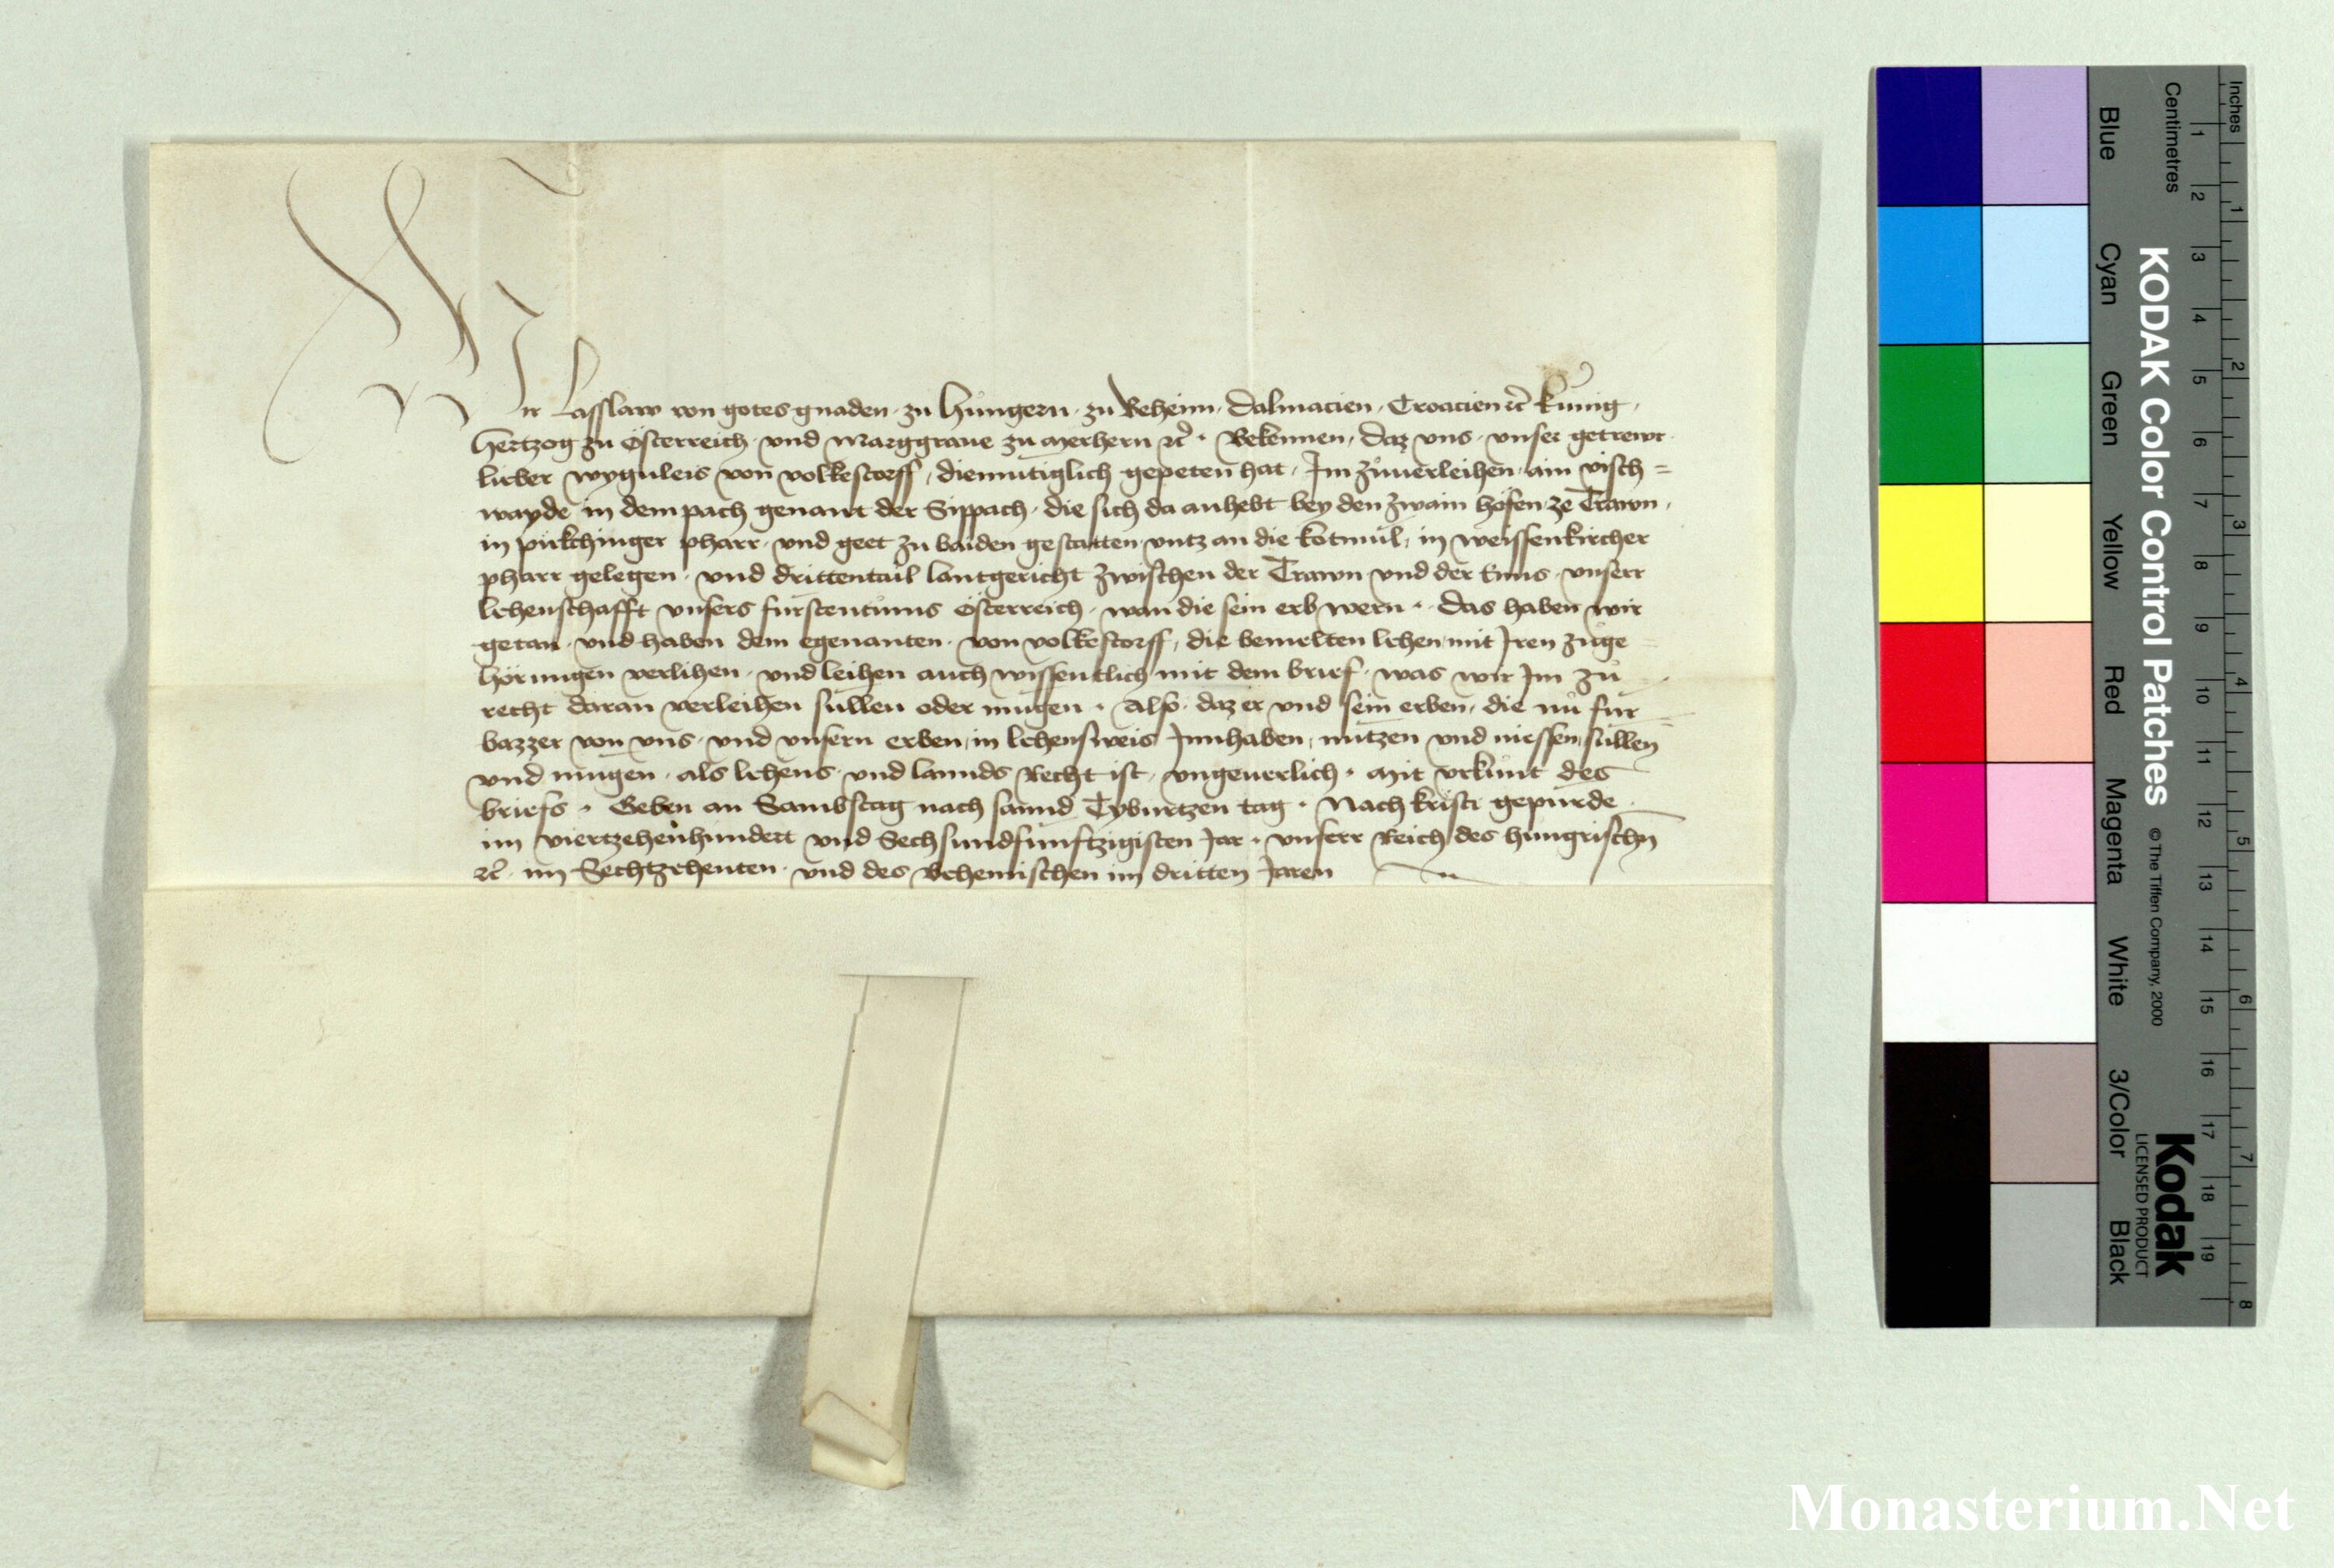 Wir Lasslaw von gotes gnaden zu Hungern zu Beheim Dalmacien Croacien etc̃ kunig
Hertzog zu Österreich und Marggraue zu Merhern etc̃ Bekennen daz vns vnser getrewr
lieber wyguleis von volkestorff diemutiglich gepeten hat Im zuuerleihen ain visch=
wayde in dem pach genant der Sippach die sich da anhebt bey den zwain höfen ze Trawn
in pukchinger pharr und geet zu baiden gestatten vntz an die kotmul in weissenkircher
pharr gelegen und drittentail lantgericht zwischen der Trawn vnd der Enns vnserr
lehenschafft vnsers furstentums Österreich wan die sein erb wern Das haben wir
getan und haben dem egenanten von volkestorff die bemelten lehen mit Iren zuge
hörungen verlihen und leihen auch wissentlich mit dem brief was wir Im zu
recht daran verleihen sullen oder mugen Also daz er vnd sein erben die nu fur
bazzer von vns vnd vnsern erben in lehensweis Innhaben nutzen vnd niessen sullen
vnd mugen als lehens vnd lannds Recht ist vngeuerlich Mit vrkunt des
briefs Geben an Sambstag nach sannd Tyburtzen tag Nach kristi gepurde
im viertzehenhundert vnd Sechsundfunftzigisten Jar vnserr Reich des hungrischn
etc̃ im Sechtzehenten vnd des Behemischen im dritten Jaren
Inches
Centimetres
KODAK Color Control Patches © The Tiffen Company, 2000
Kodak
LICENSED PRODUCT
Blue Cyan Green Yellow Red Magenta White 3/Color Black
1 2 3 4 5 6 7 8 9 10 11 12 13 14 15 16 17 18 19
1 2 3 4 5 6 7 8
Monasterium.Net